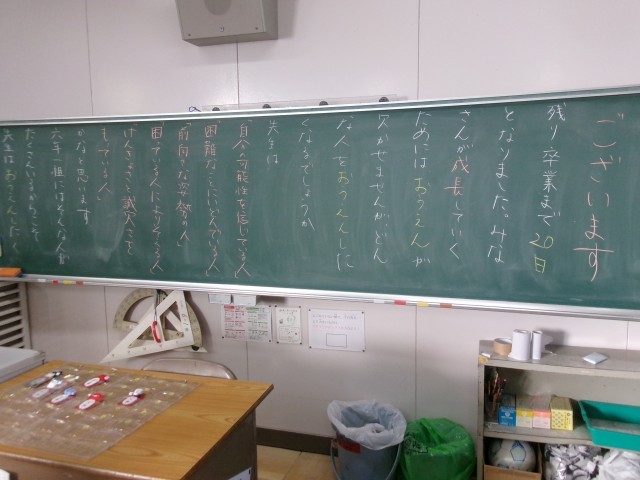 ございます
残り卒業まで20日
となりました。みな
さんが成長していく
ためにはおうえんが
欠かせませんがどん
な人をおうえんしに
くなるでしょうか
先生は
「自分の可能性を信じている人」
「困難なことにいどんでいる人」
「前向きな姿勢の人」
「困っている人によりそえる人」
もしている人」
かなと思います
六年一組にはそんな人が
たくさんいるからこそ
先生はおうえんしたく